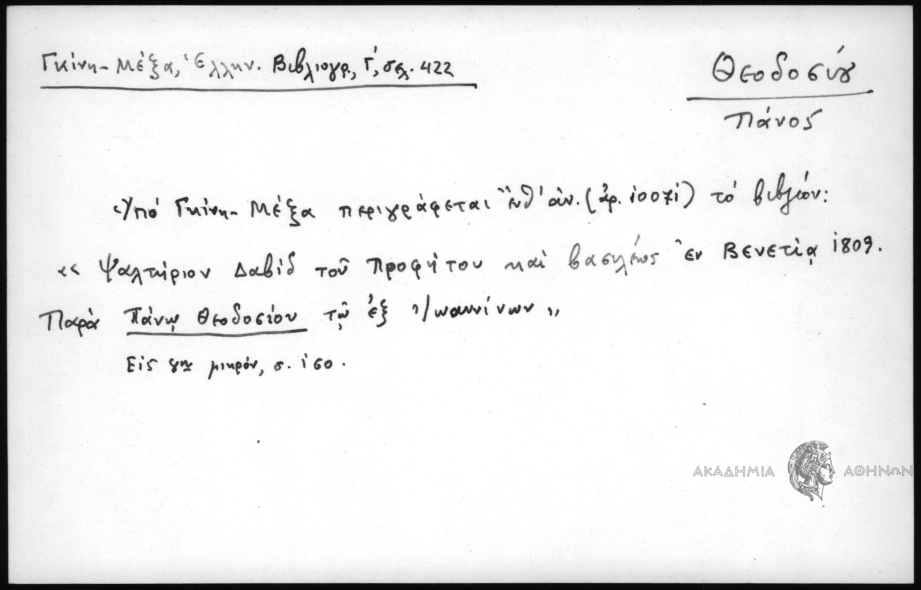 Γκίνη - Μέξα, Ἑλλην. Βιβλιογρ, Γ', σελ. 422
Θεοδοσίου
Πάνος
Ὑπό Γκίνη - Μέξα περιγράφεται ἐνθ' ἀν. (ἀρ. 10071) τό βιβλίον:
« Ψαλτήριον Δαβίδ τοῦ Προφήτου καὶ βασιλέως ἐν Βενετίᾳ 1809.
Παρὰ Πάνῳ Θεοδοσίου τῷ ἐξ Ἰωαννίνων »
Εἰς 8ον μικρόν, σ. 150.
ΑΚΑΔΗΜΙΑ ΑΘΗΝΩΝ